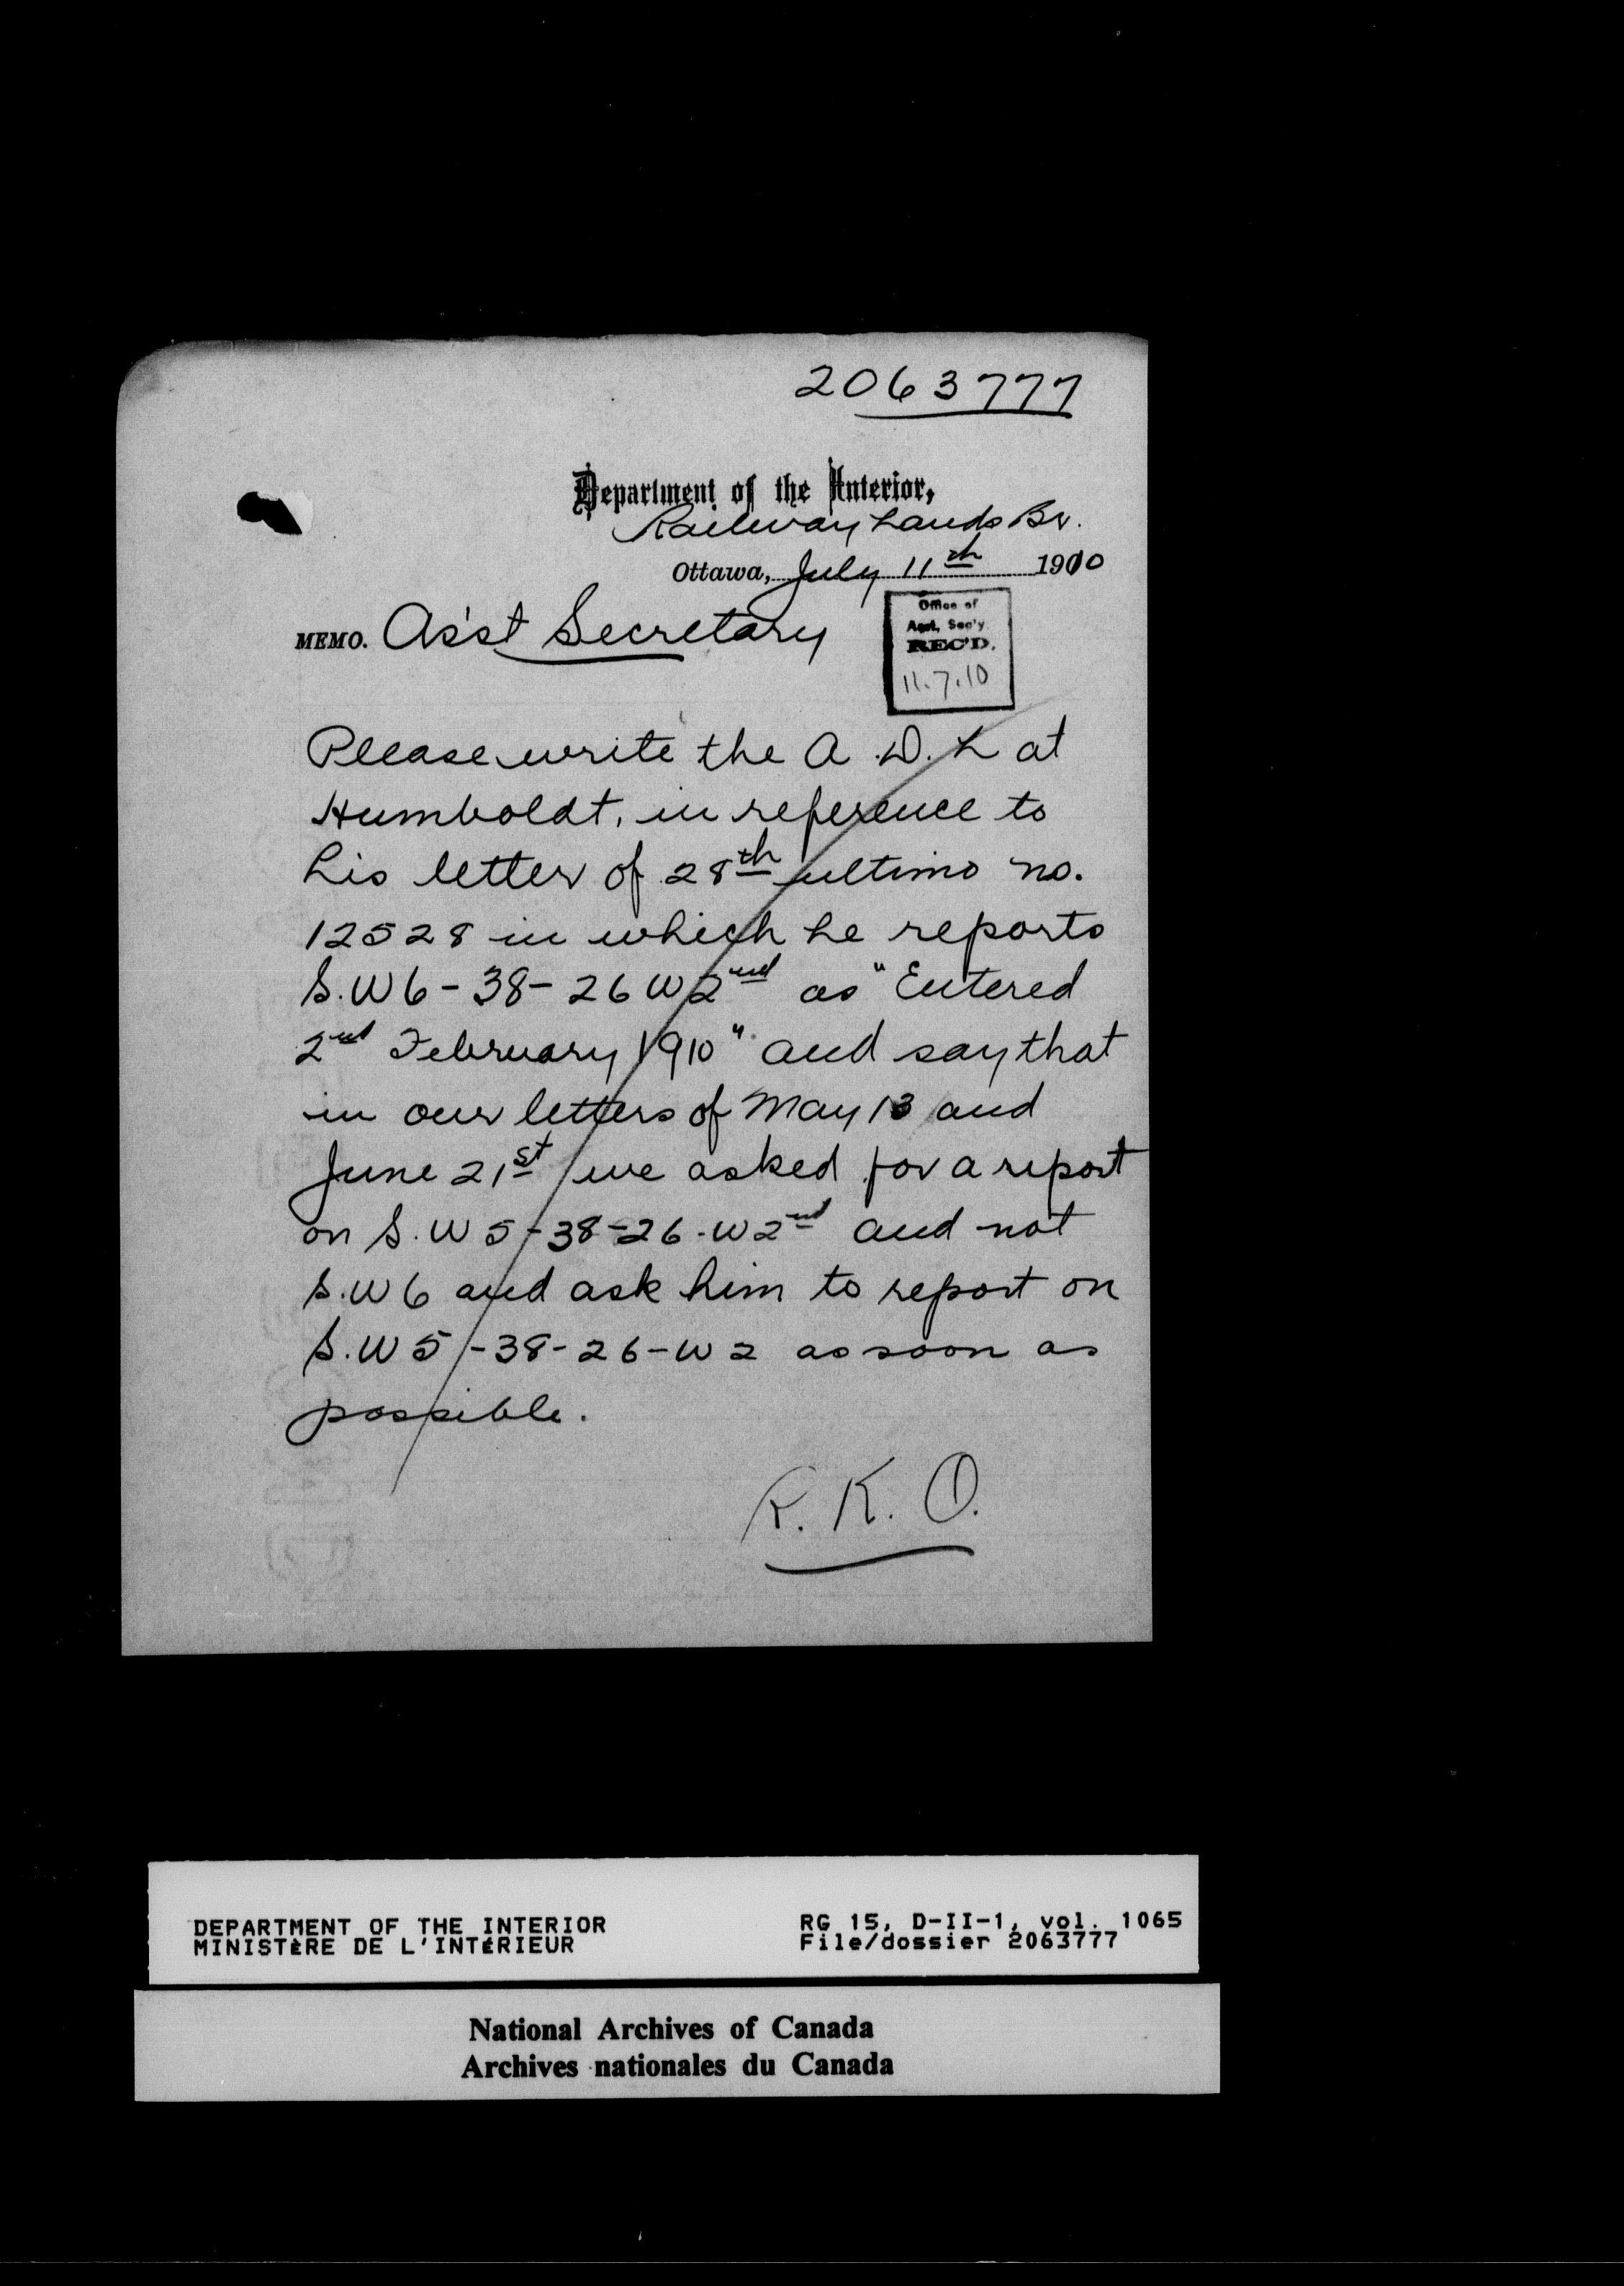 2063777
Department of the Interior,
Railway Lands Br.
Ottawa, July 11th 1910
MEMO. Ass't Secretary
Office of
Asst. Sec'y.
REC'D.
11.7.10
Please write the A.D.L at
Humboldt, in reference to
his letter of 28th ultimo no.
12528 in which he reports
S.W6-38-26W2nd as "Entered
2nd February 1910" and say that
in our letters of May 13 and
June 21st we asked for a report
on S.W5-38-26-W2nd and not
S.W6 and ask him to report on
S.W5-38-26-W2 as soon as
possible.
R.K.O.
DEPARTMENT OF THE INTERIOR RG 15, D-II-1, vol. 1065
MINISTÈRE DE L'INTÉRIEUR File/dossier 2063777
National Archives of Canada
Archives nationales du Canada